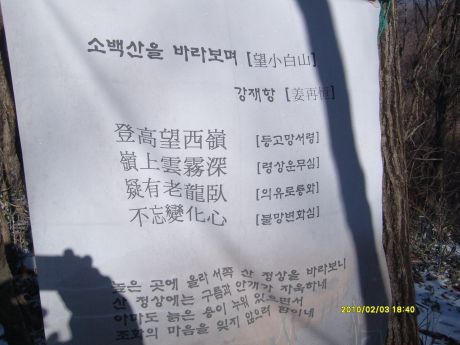 소백산을 바라보며 [望小白山]
강재항 [姜再恒]
登高望西嶺 [등고망서령]
嶺上雲霧深 [령상운무심]
疑有老龍臥 [의유로룡와]
不忘變化心 [불망변화심]
높은 곳에 올라 서쪽 산 정상을 바라보니
산 정상에는 구름과 안개가 자욱하네
아마도 늙은 용이 누워 있으면서
조화의 마음을 잊지 않으려 함이네
2010/02/03 18:40